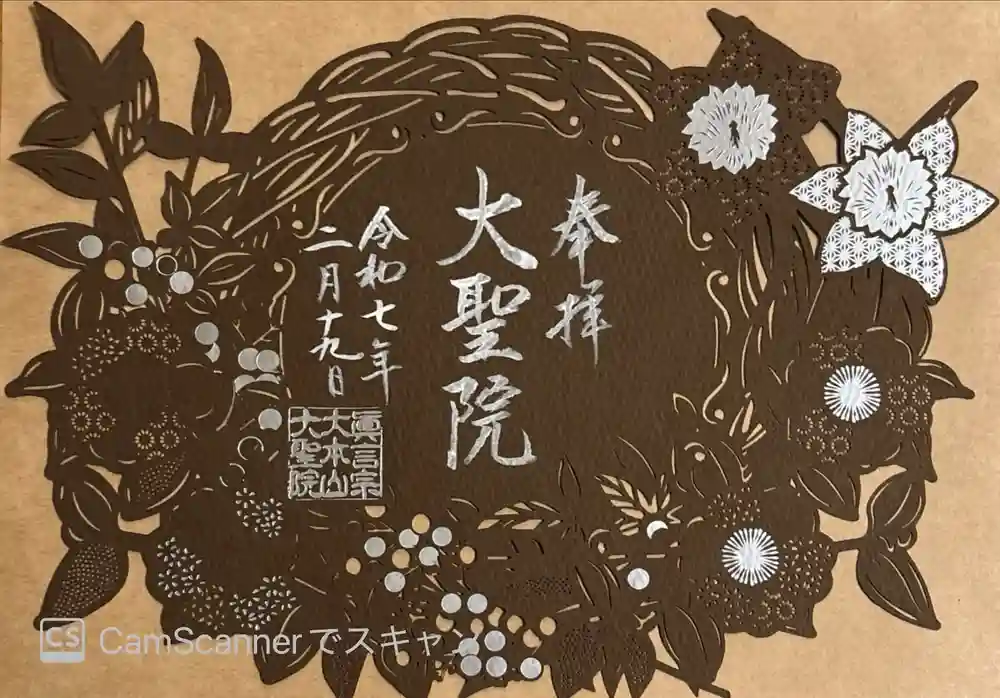 奉拝
大聖院
令和七年
二月十九日
眞言宗
大本山
大聖院
CS CamScannerでスキャン